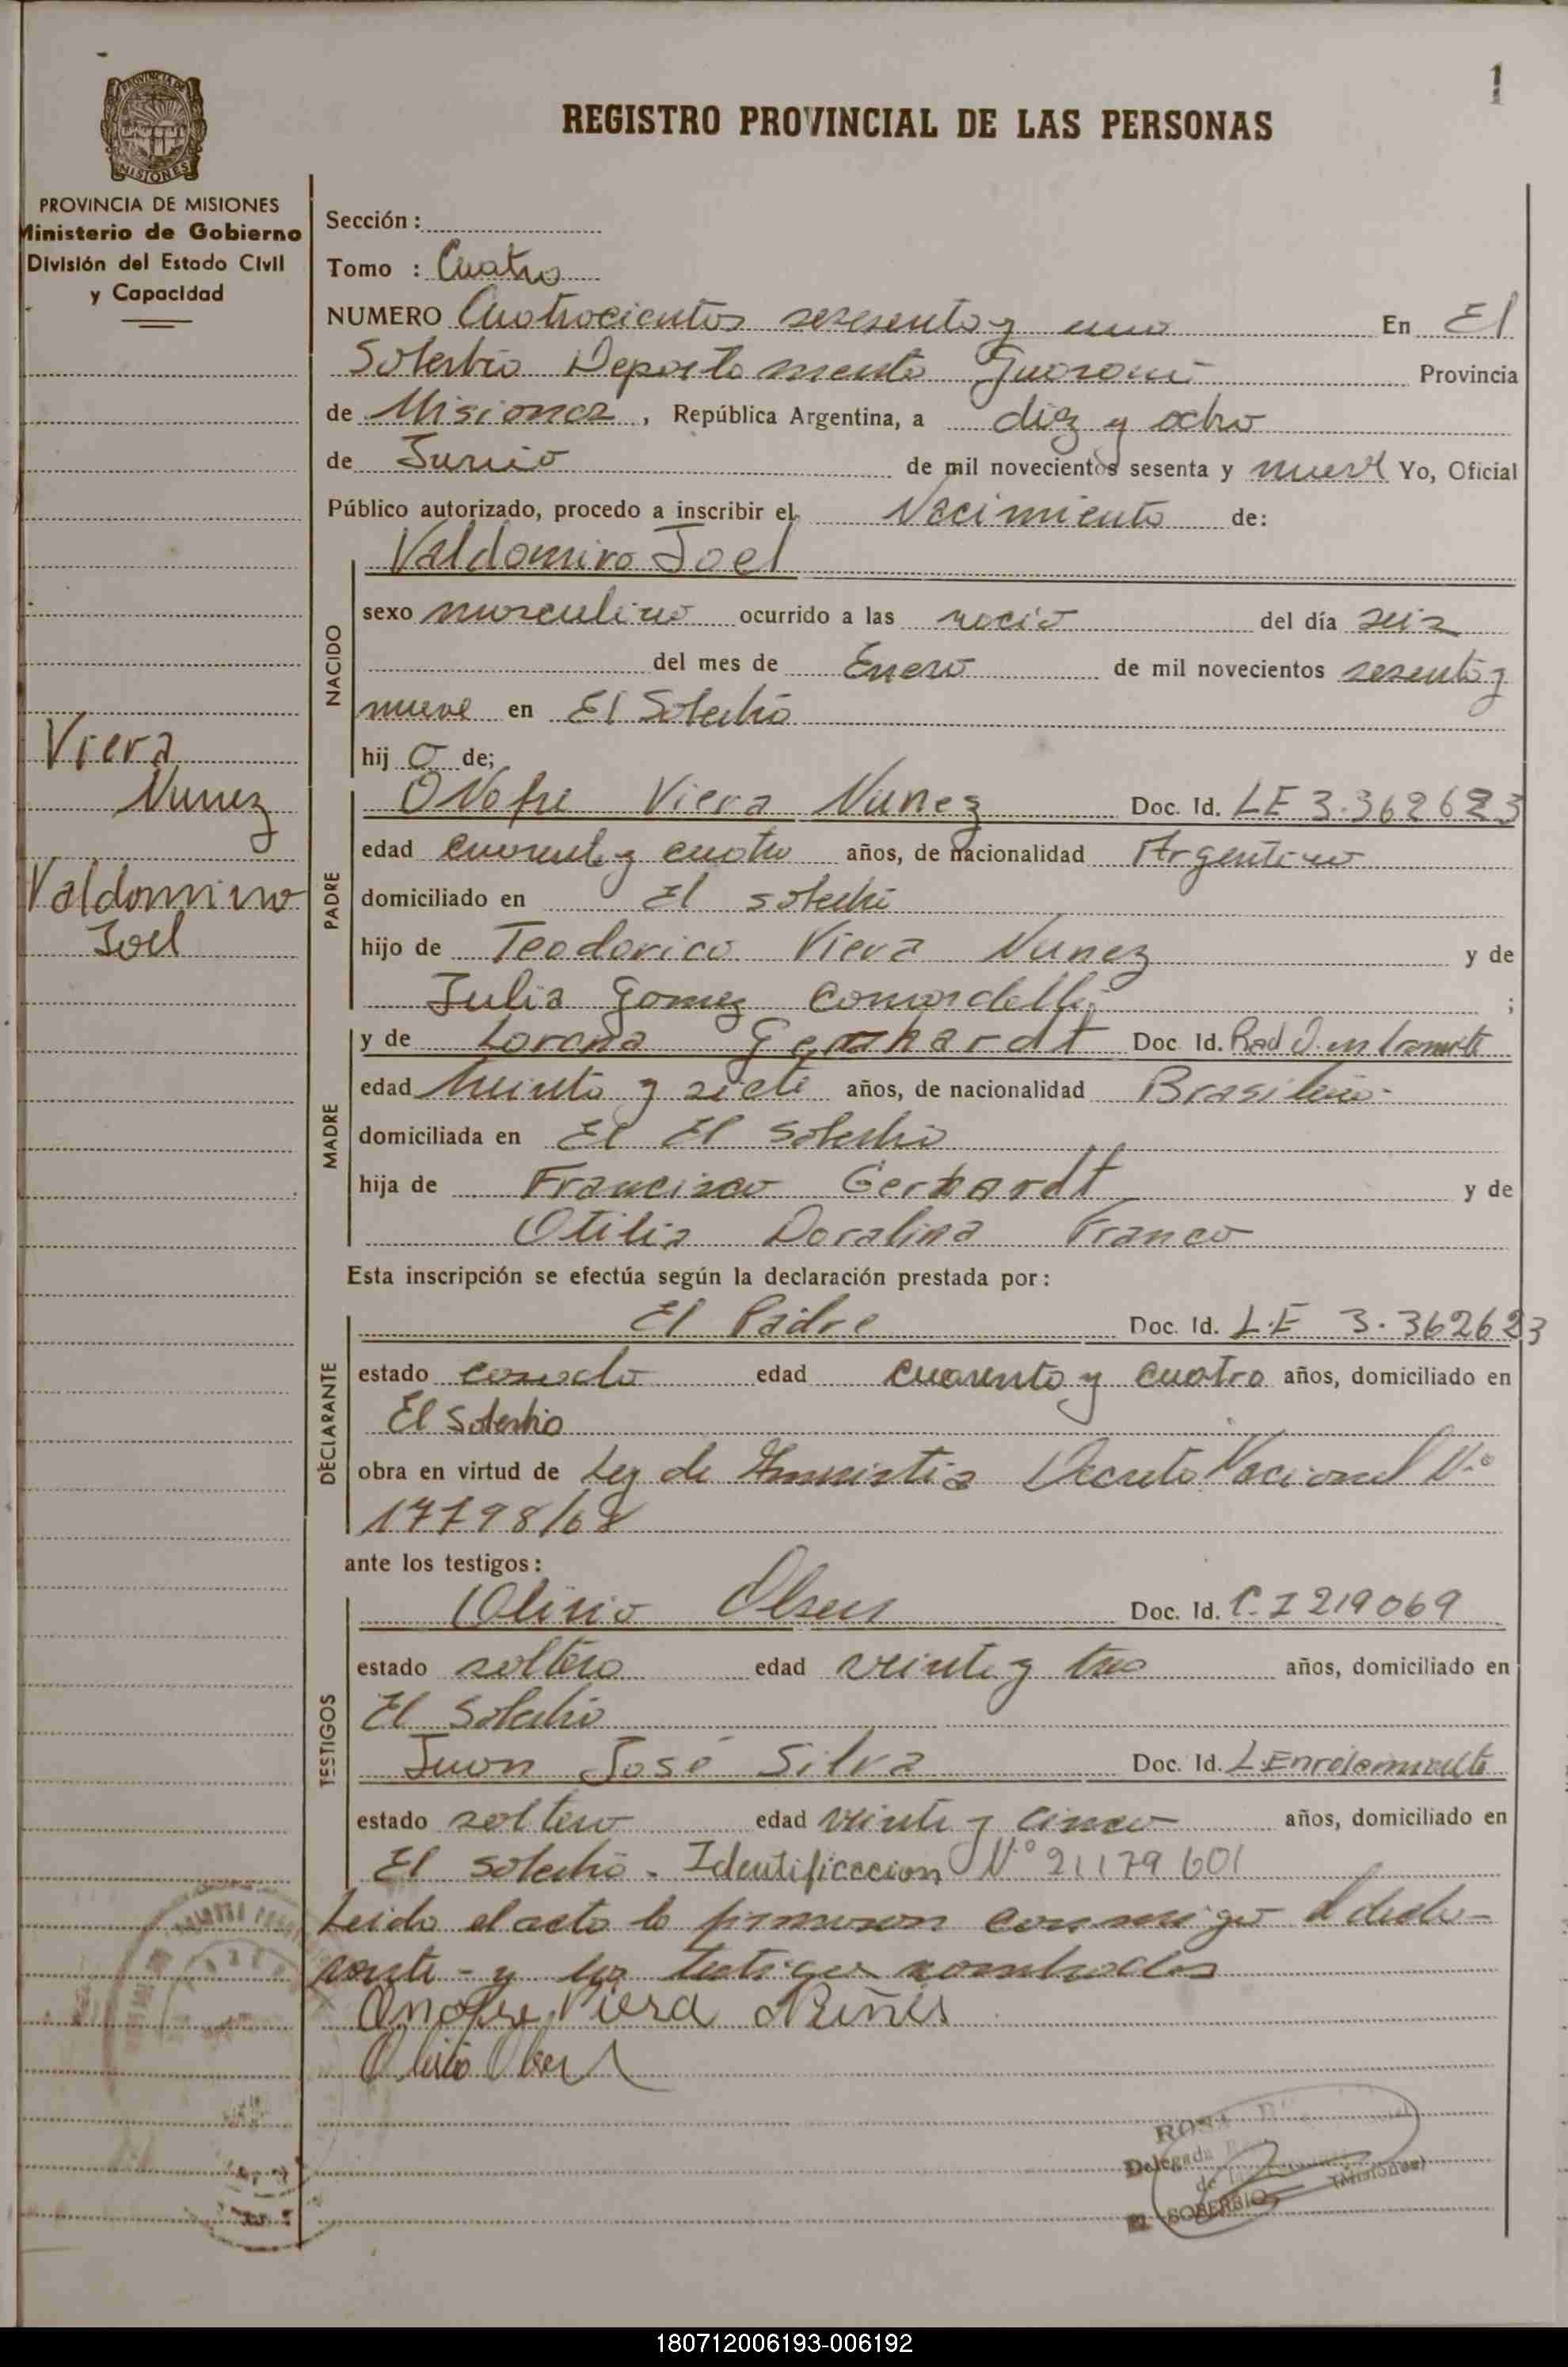 1
REGISTRO PROVINCIAL DE LAS PERSONAS
PROVINCIA DE MISIONES
MISIONES
PROVINCIA DE MISIONES
Ministerio de Gobierno
División del Estado Civil
y Capacidad
Sección :
Tomo : Cuatro
NUMERO Cuatrocientos sesesenta y uno En El
Soberbio Departamento Guarani Provincia
de Misiones, República Argentina, a diez y ocho
de Junio de mil novecientos sesenta y nueve Yo, Oficial
Público autorizado, procedo a inscribir el Nacimiento de:
NACIDO
Valdomiro Joel
sexo masculino ocurrido a las nació del día seis
del mes de Enero de mil novecientos sesenta y
nueve en El Soberbio
hij o de;
Viera
Nunez
Valdomiro
Joel
PADRE
Onofre Viera Nunez Doc. Id. LE 3.362623
edad cuarenta y cuatro años, de nacionalidad Argentino
domiciliado en El soberbio
hijo de Teodorico Viera Nunez y de
Julia Gomez ;
MADRE
y de Lorena Gerhardt Doc. Id. Rad
edad treinta y siete años, de nacionalidad Brasileña
domiciliada en El El Soberbio
hija de Francisco Gerhardt y de
Otilia Doralina Franco
Esta inscripción se efectúa según la declaración prestada por:
DECLARANTE
El Padre Doc. Id. L.E 3.362623
estado casado edad cuarenta y cuatro años, domiciliado en
El Soberbio
obra en virtud de Ley de Amnistia Decreto Nacional Nº
17798/68
ante los testigos:
TESTIGOS
Olirio Olsen Doc. Id. C.I 219069
estado soltero edad veinte y tres años, domiciliado en
El Soberbio
Juan José Silva Doc. Id. L.Enrolamiento
estado soltero edad veinte y cinco años, domiciliado en
El soberbio - Identificacion Nº 21179.601
Leida el acta la firmaron conmigo el decla-
rante - y los testigos nombrados
Onofre Viera Nuñes
Olirio Olsen
ROSA
Delegada
de
El SOBERBIO (Misiones)
180712006193-006192